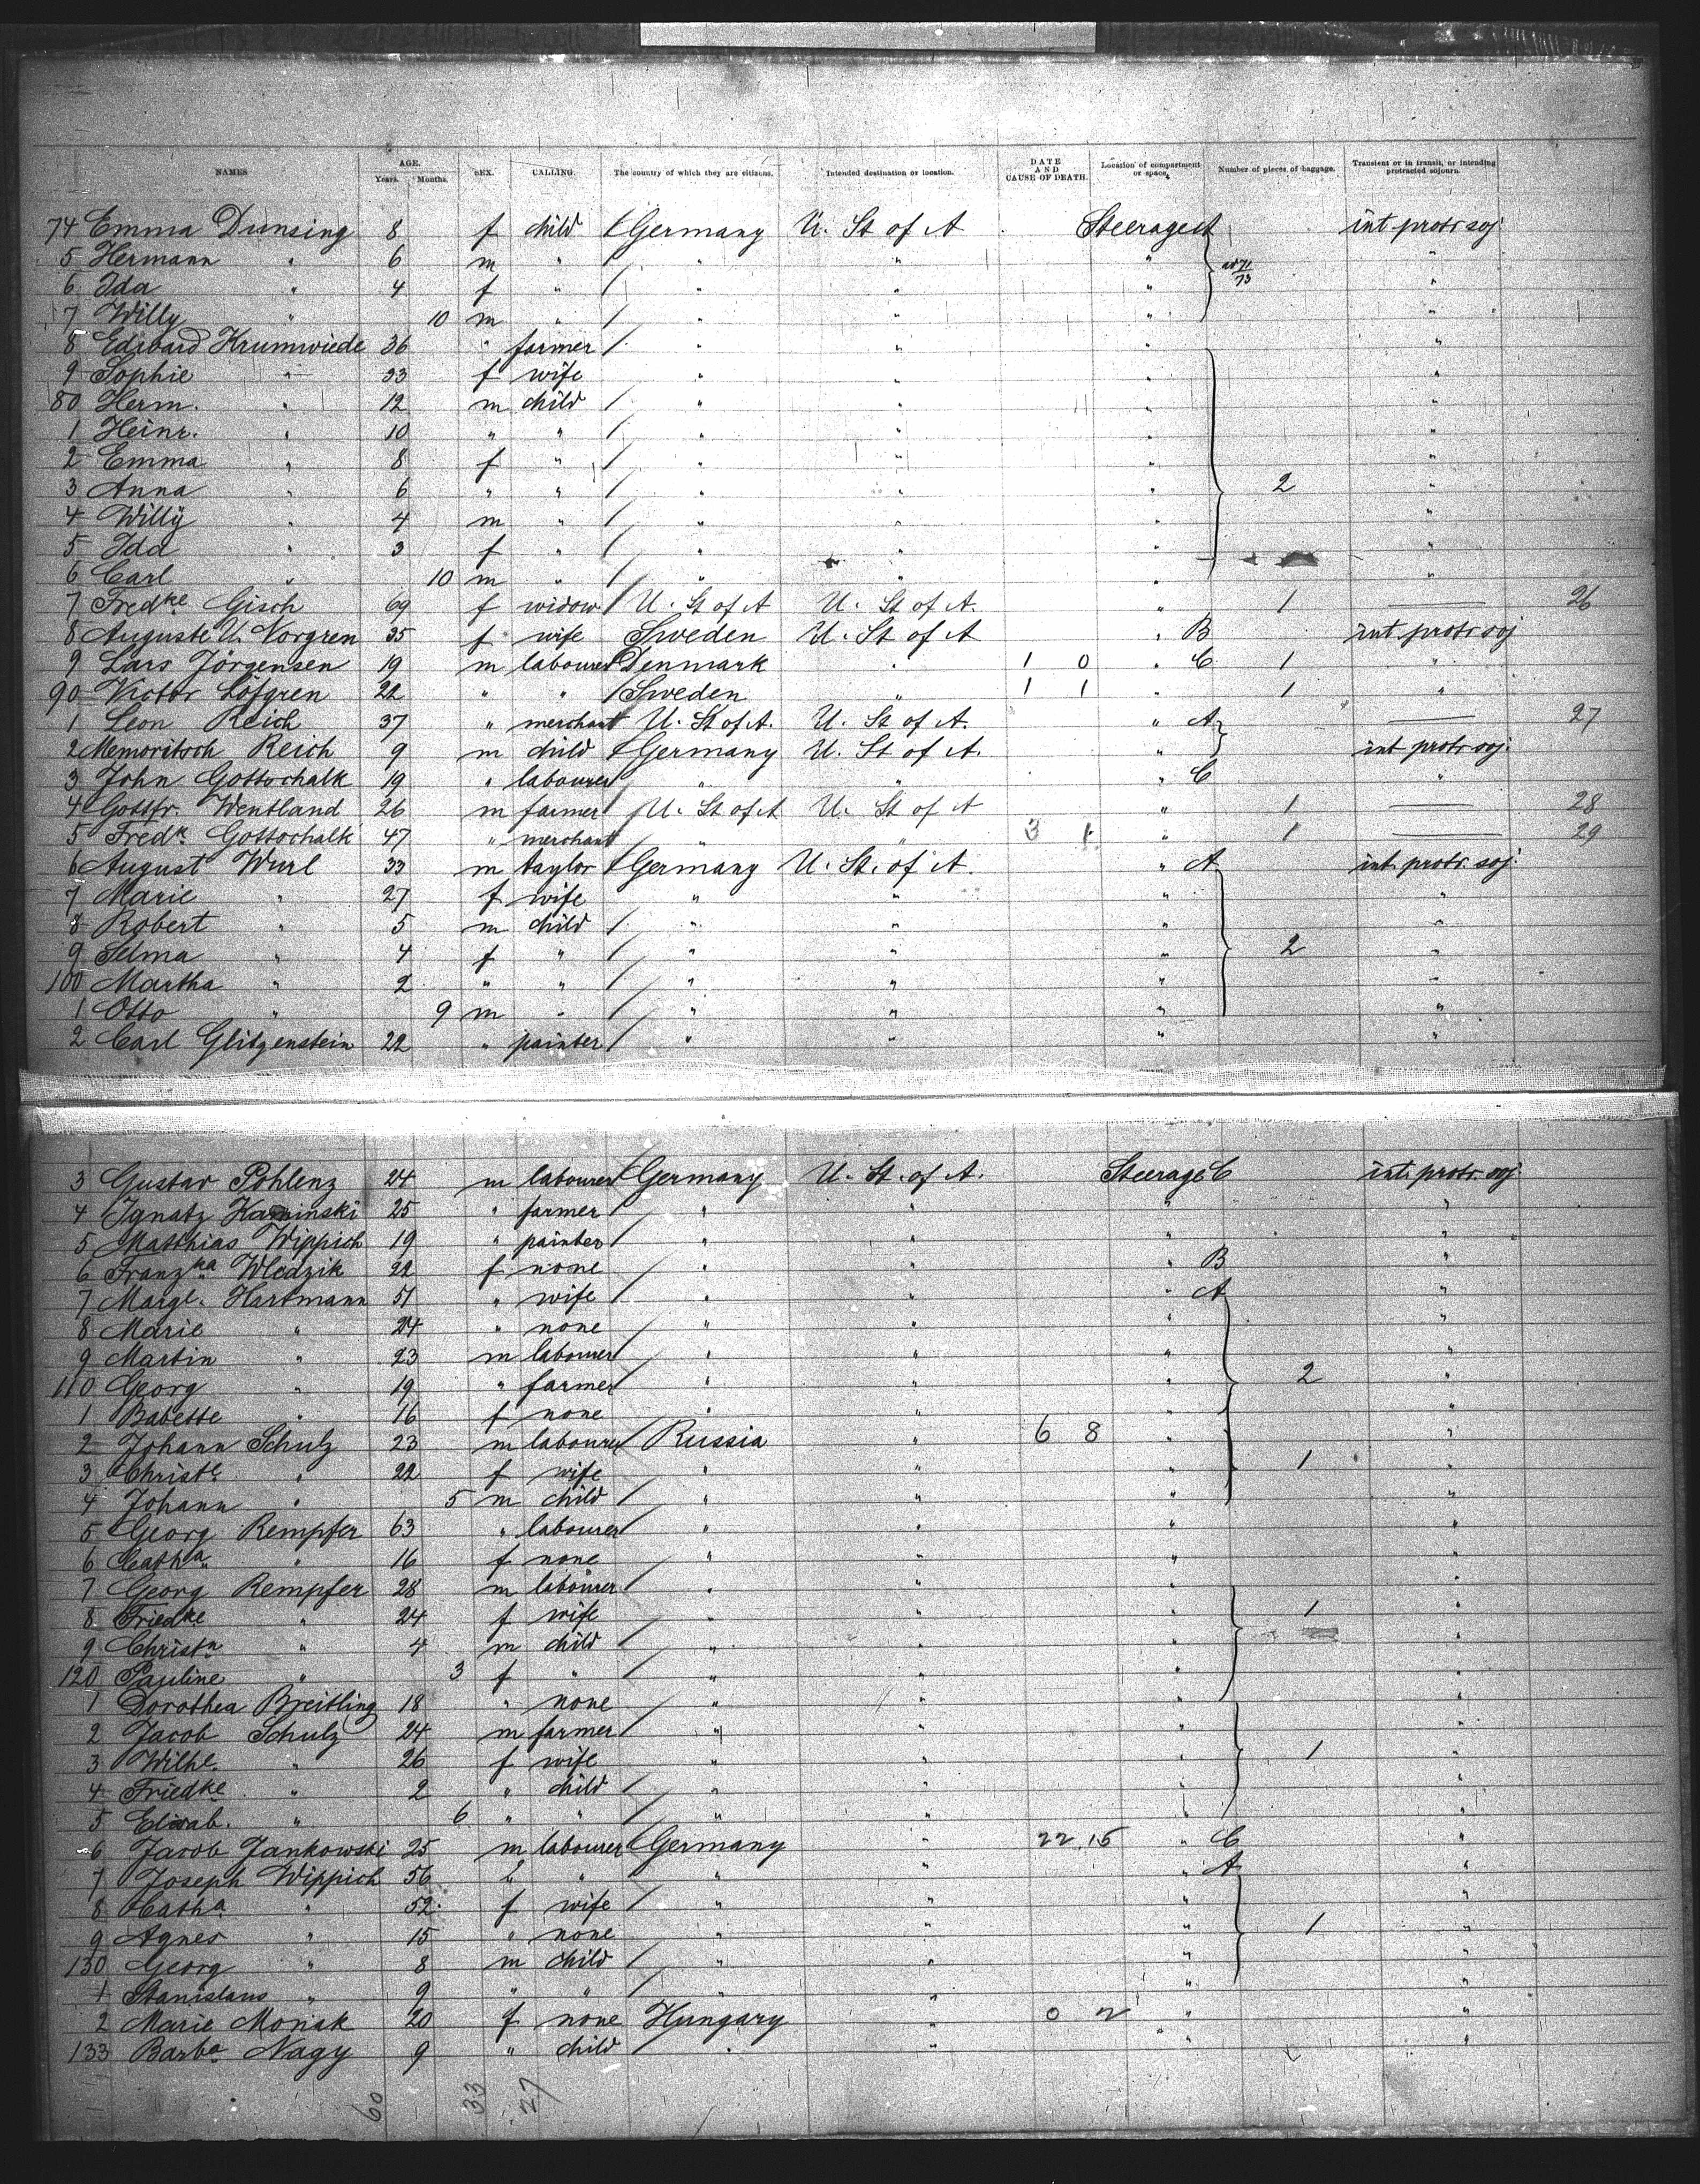 NAMES AGE. Years. Months. SEX. CALLING. The country of which they are citizens. Intended destination or location. DATE AND CAUSE OF DEATH. Location of compartment or space. Number of pieces of baggage. Transient or in transit, or intending protracted sojourn.
74 Emma Dunsing 8 f child Germany U. St of A Steerage A int protr soj
5 Hermann " 6 m " " " " "
6 Ida " 4 f " " " " "
7 Willy " 10 m " " " " "
8 Eduard Krumwiede 36 " farmer " " " "
9 Sophie " 33 f wife " " " "
80 Herm. " 12 m child " " " "
1 Heinr. " 10 " " " " " "
2 Emma " 8 f " " " " "
3 Anna " 6 " " " " " 2 "
4 Willy " 4 m " " " " "
5 Ida " 3 f " " " " "
6 Carl " 10 m " " " " "
7 Fredke Gisch 69 f widow U. St of A U. St of A. " 1 — 26
8 Auguste U. Norgren 35 f wife Sweden U. St of A " B int. protr soj
9 Lars Jörgensen 19 m labourer Denmark " 1 0 " C 1 "
90 Victor Löfgren 22 " " Sweden " 1 1 " 1 "
1 Leon Reich 37 " merchant U. St of A. U. St of A. " A — 27
2 Reich 9 m child Germany U. St of A. " int protr soj.
3 John Gottschalk 19 " labourer " " " C "
4 Gottfr. Wentland 26 m farmer U. St of A U. St of A " 1 — 28
5 Fredk. Gottschalk 47 " merchant " " 3 1 " 1 — 29
6 August Wurl 33 m taylor Germany U. St. of A. " A int protr. soj.
7 Marie " 27 f wife " " " "
8 Robert " 5 m child " " " "
9 Selma " 4 f " " " " 2 "
100 Martha " 2 " " " " " "
1 Otto " 9 m " " " " "
2 Carl Glitzenstein 22 " painter " " " "
3 Gustav Pohlenz 24 m labourer Germany U. St. of A. Steerage C int. protr. soj.
4 Ignatz Kaminski 25 " farmer " " " "
5 Matthias Wippich 19 " painter " " " "
6 Franzka Wledzik 22 f none " " " B "
7 Margt. Hartmann 51 " wife " " " A "
8 Marie " 24 " none " " " "
9 Martin " 23 m labourer " " " "
110 Georg " 19 " farmer " " " 2 "
1 Babette " 16 f none " " " "
2 Johann Schulz 23 m labourer Russia " 6 8 " "
3 Christe " 22 f wife " " " 1 "
4 Johann " 5 m child " " " "
5 Georg Rempfer 63 " labourer " " " "
6 Catha " 16 f none " " " "
7 Georg Rempfer 28 m labourer " " " "
8 Friedke " 24 f wife " " " 1 "
9 Christn " 4 m child " " " "
120 Pauline " 3 f " " " " "
1 Dorothea Breitling 18 " none " " " "
2 Jacob Schulz 24 m farmer " " " "
3 Wilhe. " 26 f wife " " " 1 "
4 Friedke " 2 " child " " " "
5 Elisab. " 6 " " " " " "
6 Jacob Jankowski 25 m labourer Germany " 22 15 " C "
7 Joseph Wippich 56 " " " " A "
8 Catha " 52 f wife " " " "
9 Agnes " 15 " none " " " 1 "
130 Georg " 8 m child " " " "
1 Stanislaus " 9 " " " " " "
2 Marie Monak 20 f none Hungary " 0 2 " "
133 Barba Nagy 9 " child " " " "
60 33 27